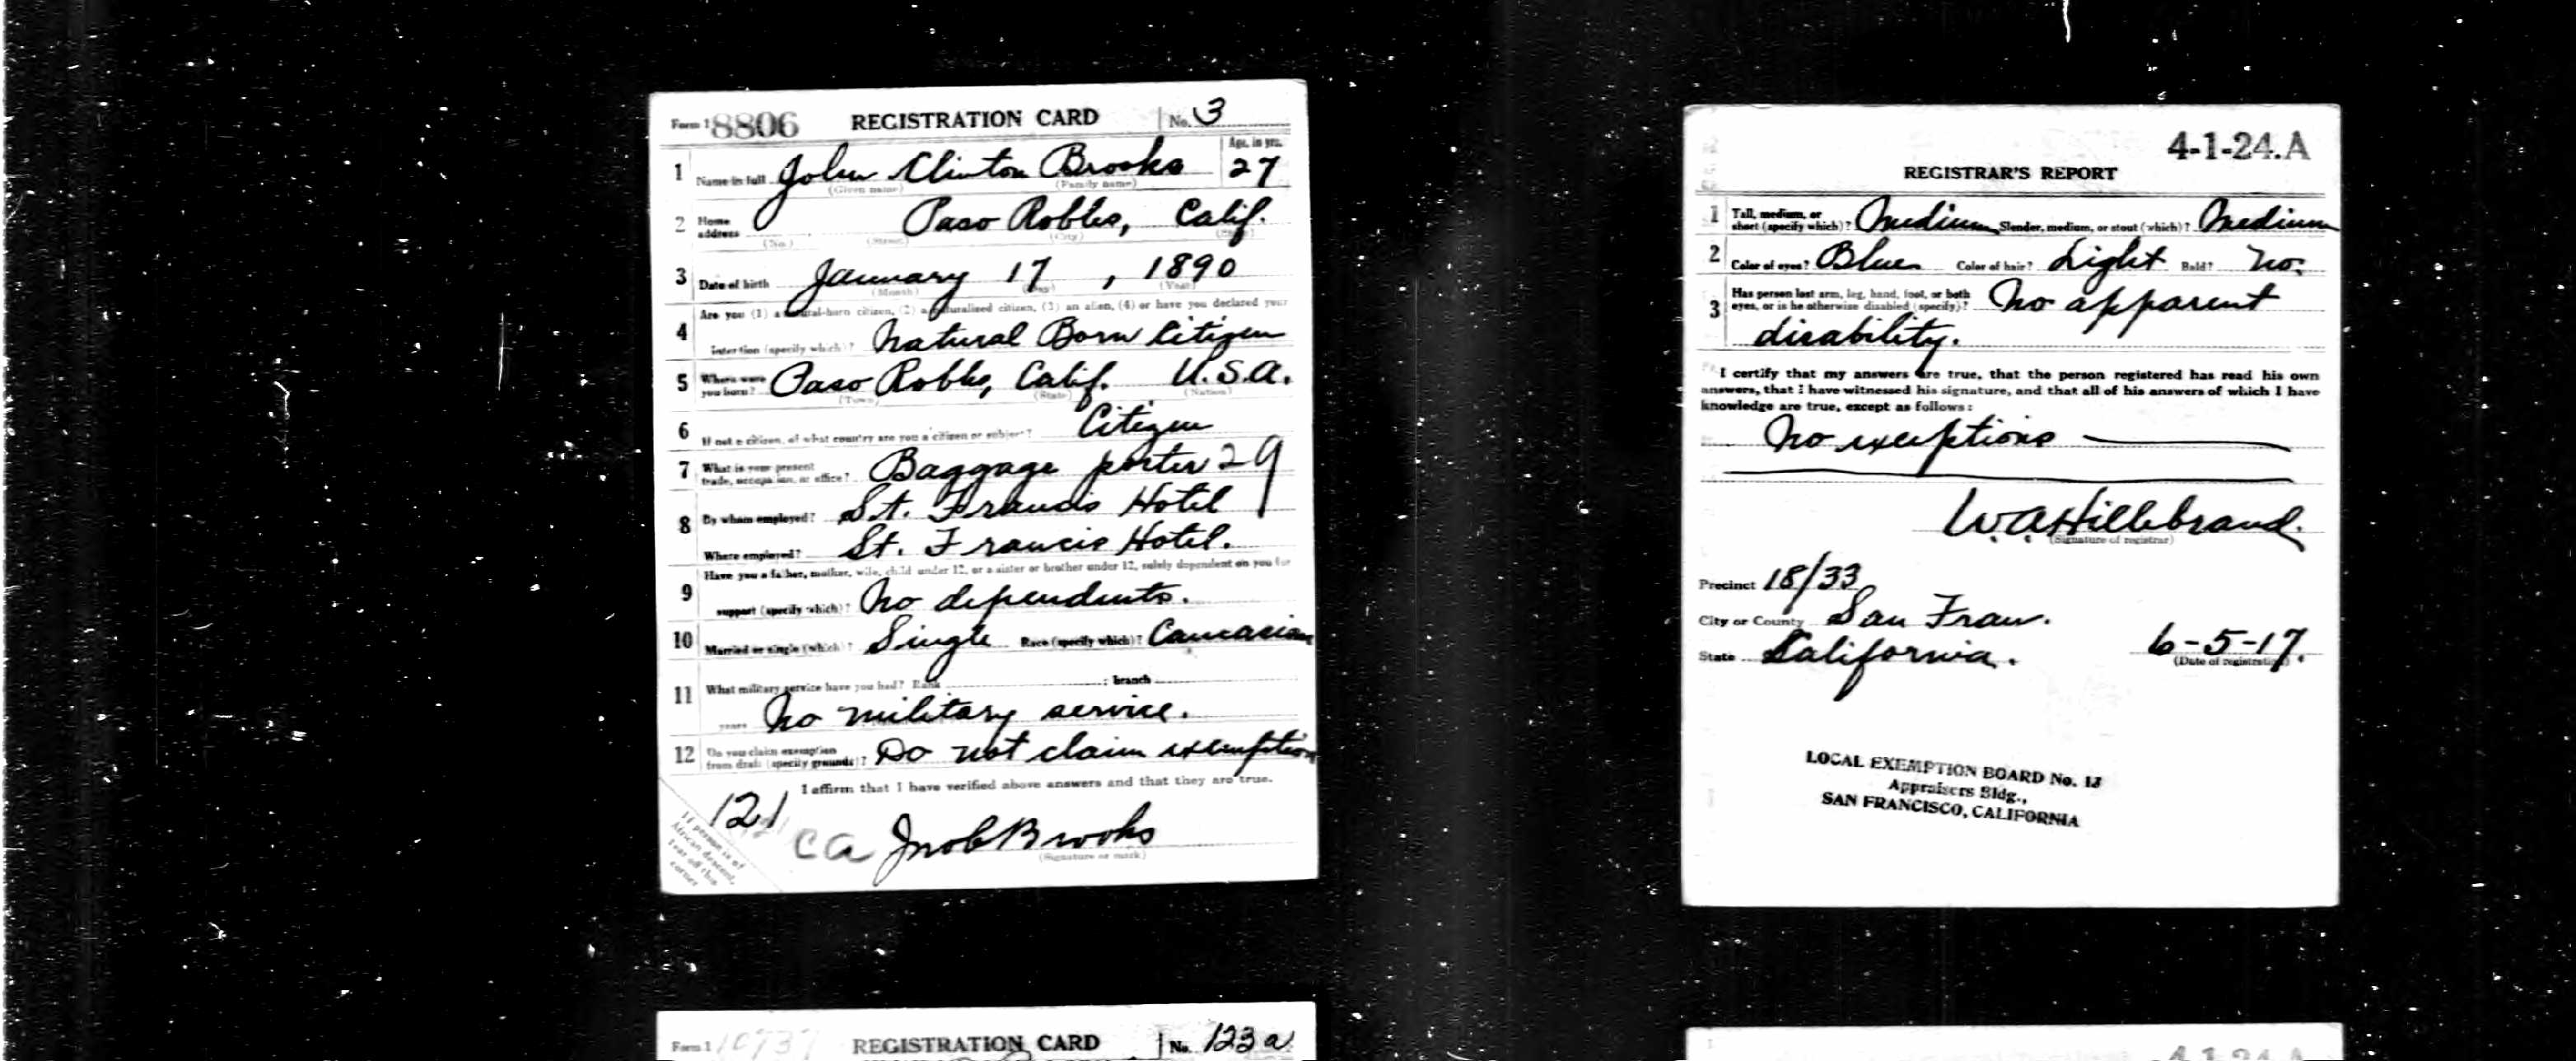 Form 1 8806 REGISTRATION CARD No. 3
1 Name in full John Clinton Brooks Age, in yrs. 27
(Given name) (Family name)
2 Home address Paso Robles, Calif.
(No.) (Street) (City) (State)
3 Date of birth January 17, 1890
(Month) (Day) (Year)
Are you (1) a natural-born citizen, (2) a naturalized citizen, (3) an alien, (4) or have you declared your
4 intention (specify which)? Natural Born Citizen
5 Where were you born? Paso Robles, Calif. U.S.A.
(Town) (State) (Nation)
6 If not a citizen, of what country are you a citizen or subject? Citizen
7 What is your present trade, occupation, or office? Baggage porter 29
8 By whom employed? St. Francis Hotel
Where employed? St. Francis Hotel.
Have you a father, mother, wife, child under 12, or a sister or brother under 12, solely dependent on you for
9 support (specify which)? No dependents.
10 Married or single (which)? Single Race (specify which)? Caucasian
11 What military service have you had? Rank ; branch
years No military service.
12 Do you claim exemption from draft (specify grounds)? Do not claim exemption
I affirm that I have verified above answers and that they are true.
121 ca Jno C Brooks
(Signature or mark)
If person is of
African descent,
tear off this
corner
Form 1 REGISTRATION CARD No. 123 a
4-1-24.A
REGISTRAR'S REPORT
1 Tall, medium, or short (specify which)? Medium Slender, medium, or stout (which)? Medium
2 Color of eyes? Blue Color of hair? Light Bald? No.
3 Has person lost arm, leg, hand, foot, or both eyes, or is he otherwise disabled (specify)? No apparent
disability.
I certify that my answers are true, that the person registered has read his own
answers, that I have witnessed his signature, and that all of his answers of which I have
knowledge are true, except as follows:
No exceptions
W.A. Hillebrand.
(Signature of registrar)
Precinct 18/33
City or County San Fran.
State California. 6-5-17.
(Date of registration)
LOCAL EXEMPTION BOARD No. 13
Appraisers Bldg.,
SAN FRANCISCO, CALIFORNIA